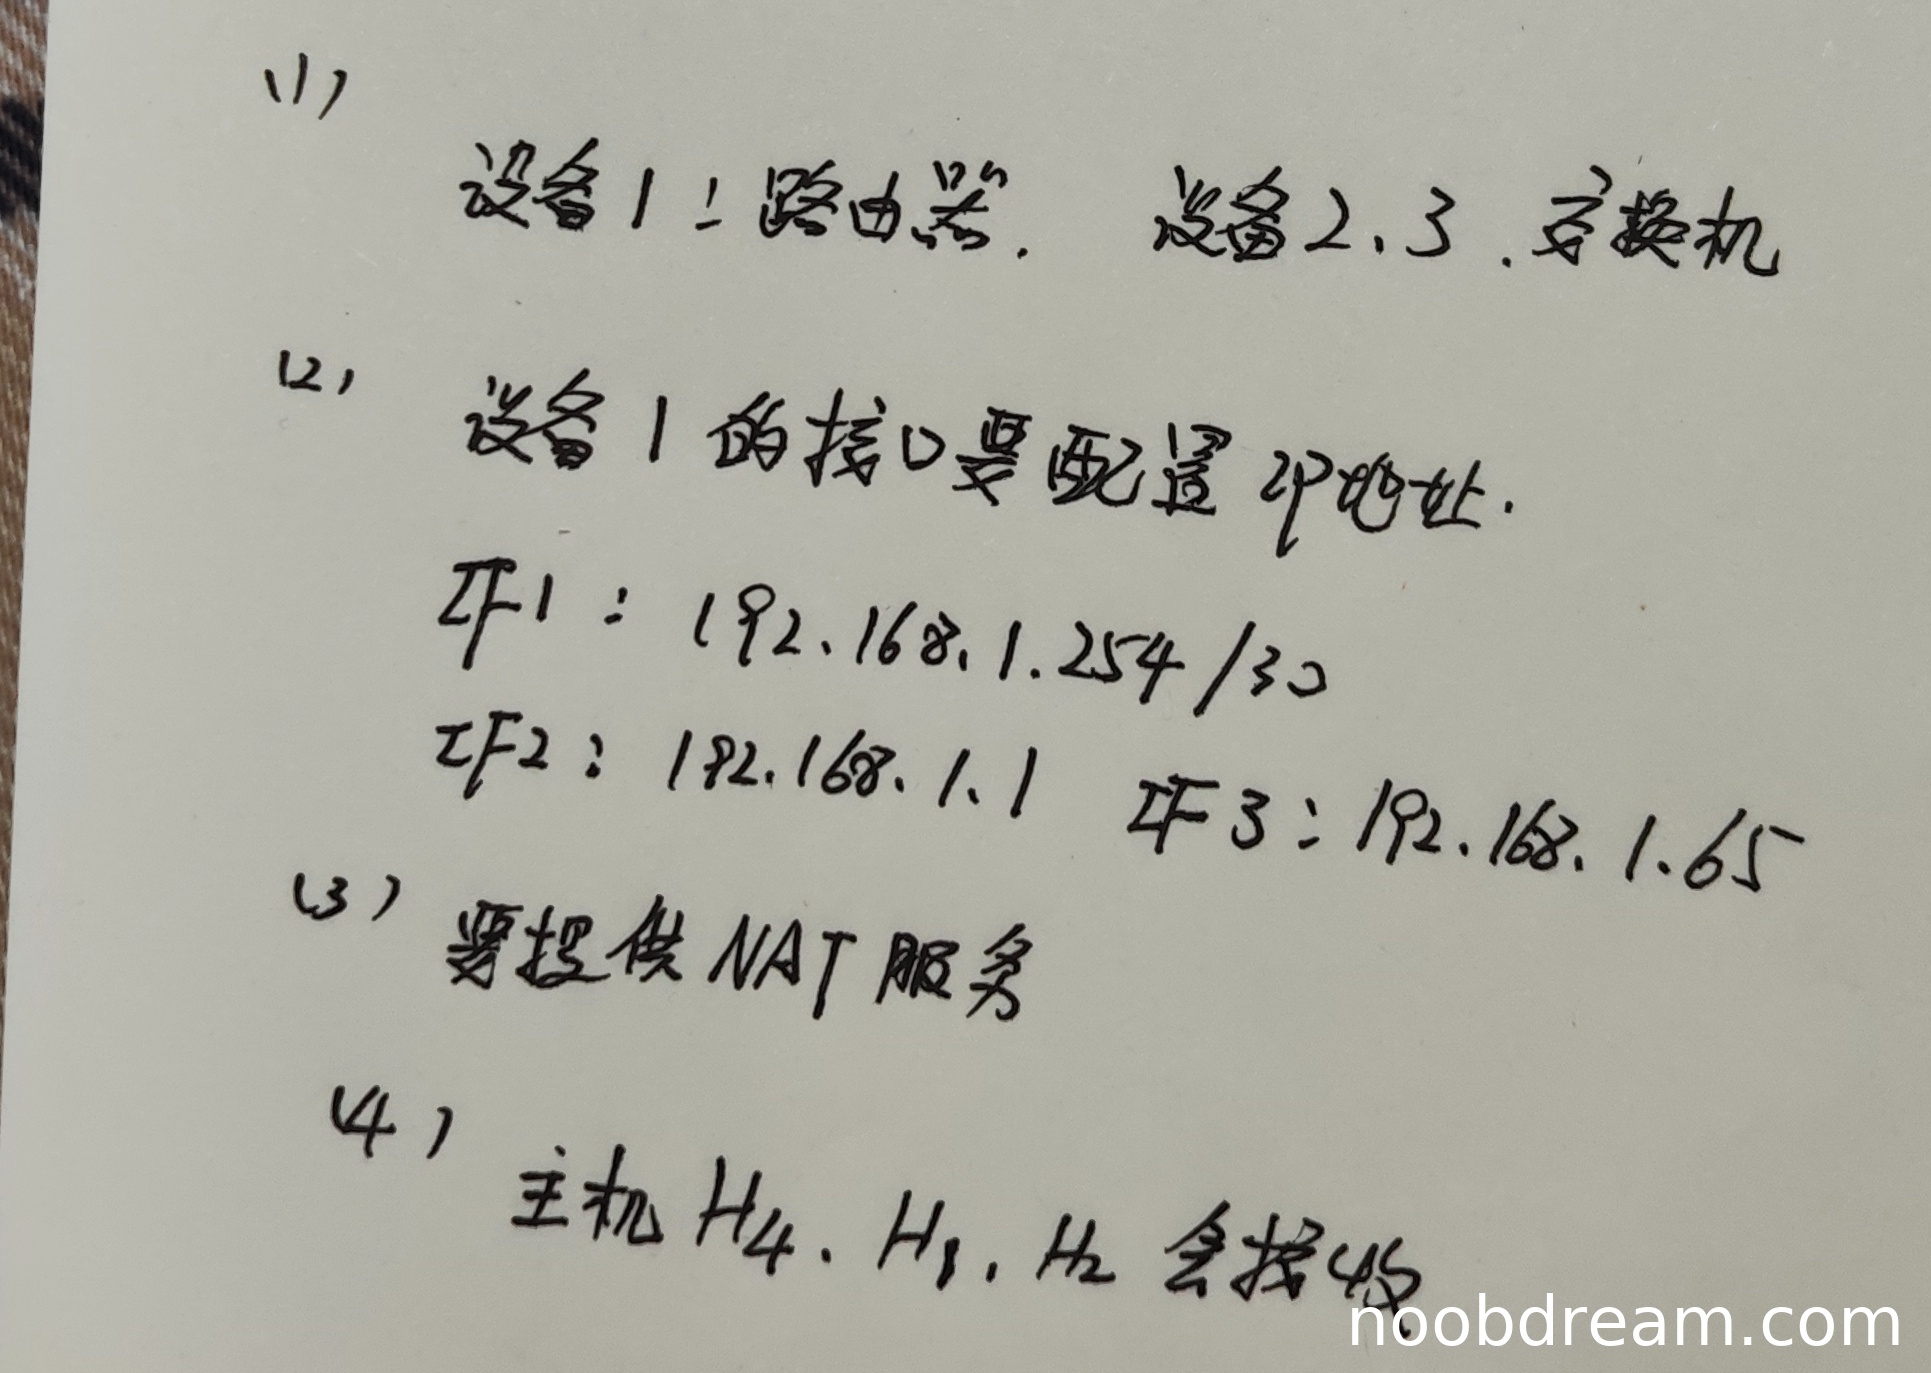 (1)
设备1：路由器. 设备2、3.交换机
(2) 设备1的接口要配置IP地址.
IF1：192.168.1.254/30
IF2：192.168.1.1 IF3：192.168.1.65
(3) 要提供NAT服务
(4)
主机H4、H3、H2会接收
noobdream.com